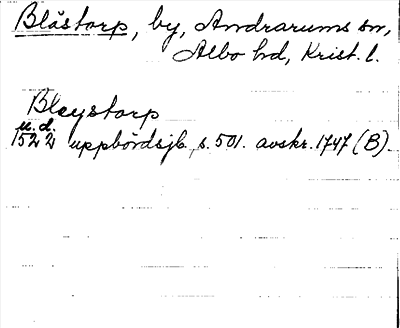 Blåstorp, by, Andrarums sn,
Albo hd, Krist. l.
Bleystorp
u.d.
1522 uppbördsjb. s. 501. avskr. 1747 (B).